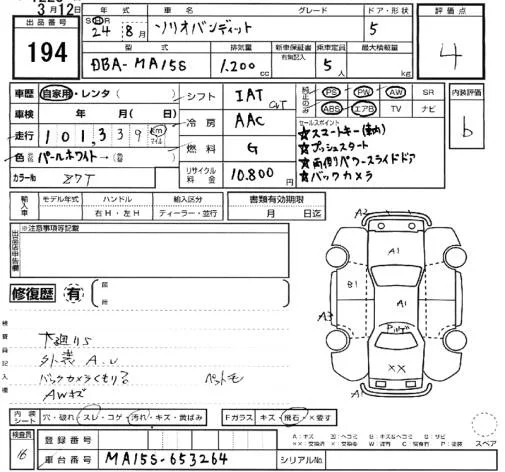 3月12日
出品番号
194
年式
車名
グレード
ドア・形状
評価点
SH 24年 8月
ソリオバンディット
5
4
型式
排気量
新車保証書
有無記入
乗車定員
最大積載量
DBA-MA15S
1.200cc
5人
kg
車歴 自家用・レンタ( )
シフト IAT
純正のみ PS PW AW SR
ABS エアB TV ナビ
内装評価
b
車検 年 月( 日)
冷房 AAC
セールスポイント
☆スマートキー
☆プッシュスタート
☆両側パワースライドドア
☆バックカメラ
走行 101,339 km マイル
燃料 G
色 パールホワイト→( )
カラーNo Z7T
リサイクル料金 10.800円
輸入車
モデル年式
ハンドル
右H・左H
輸入区分
ディーラー・並行
書類有効期限
月 日迄
出品店申告欄
※注意事項等記載
修復歴 有
前
後
検査員記入欄
外装 A.U
バックカメラくもり有
AWキズ
ペットモ
A2
A1
B1
A1
A3
XX
内装シート 穴・破れ・スレ・コゲ・汚れ・キズ・黄ばみ
Fガラス キズ・飛石・X要す
A:キズ U:ヘコミ B:キズ&ヘコミ S:サビ
スペア
検査員
16
登録番号
車台番号 MA15S-653264
シリアルNo.